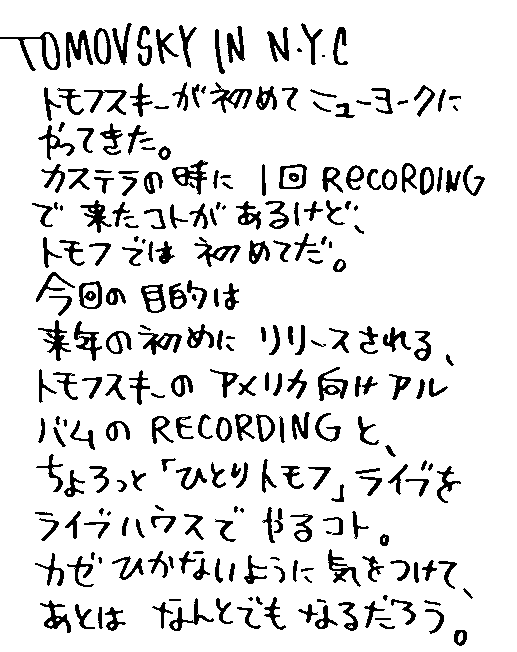 TOMOVSKY IN N.Y.C
トモフスキーが初めてニューヨークに
やってきた。
カステラの時に1回RECORDING
で来たコトがあるけど、
トモフでは初めてだ。
今回の目的は
来年の初めにリリースされる、
トモフスキーのアメリカ向けアル
バムのRECORDINGと、
ちょろっと「ひとりトモフ」ライブを
ライブハウスでやるコト。
カゼひかないように気をつけて、
あとはなんとでもなるだろう。